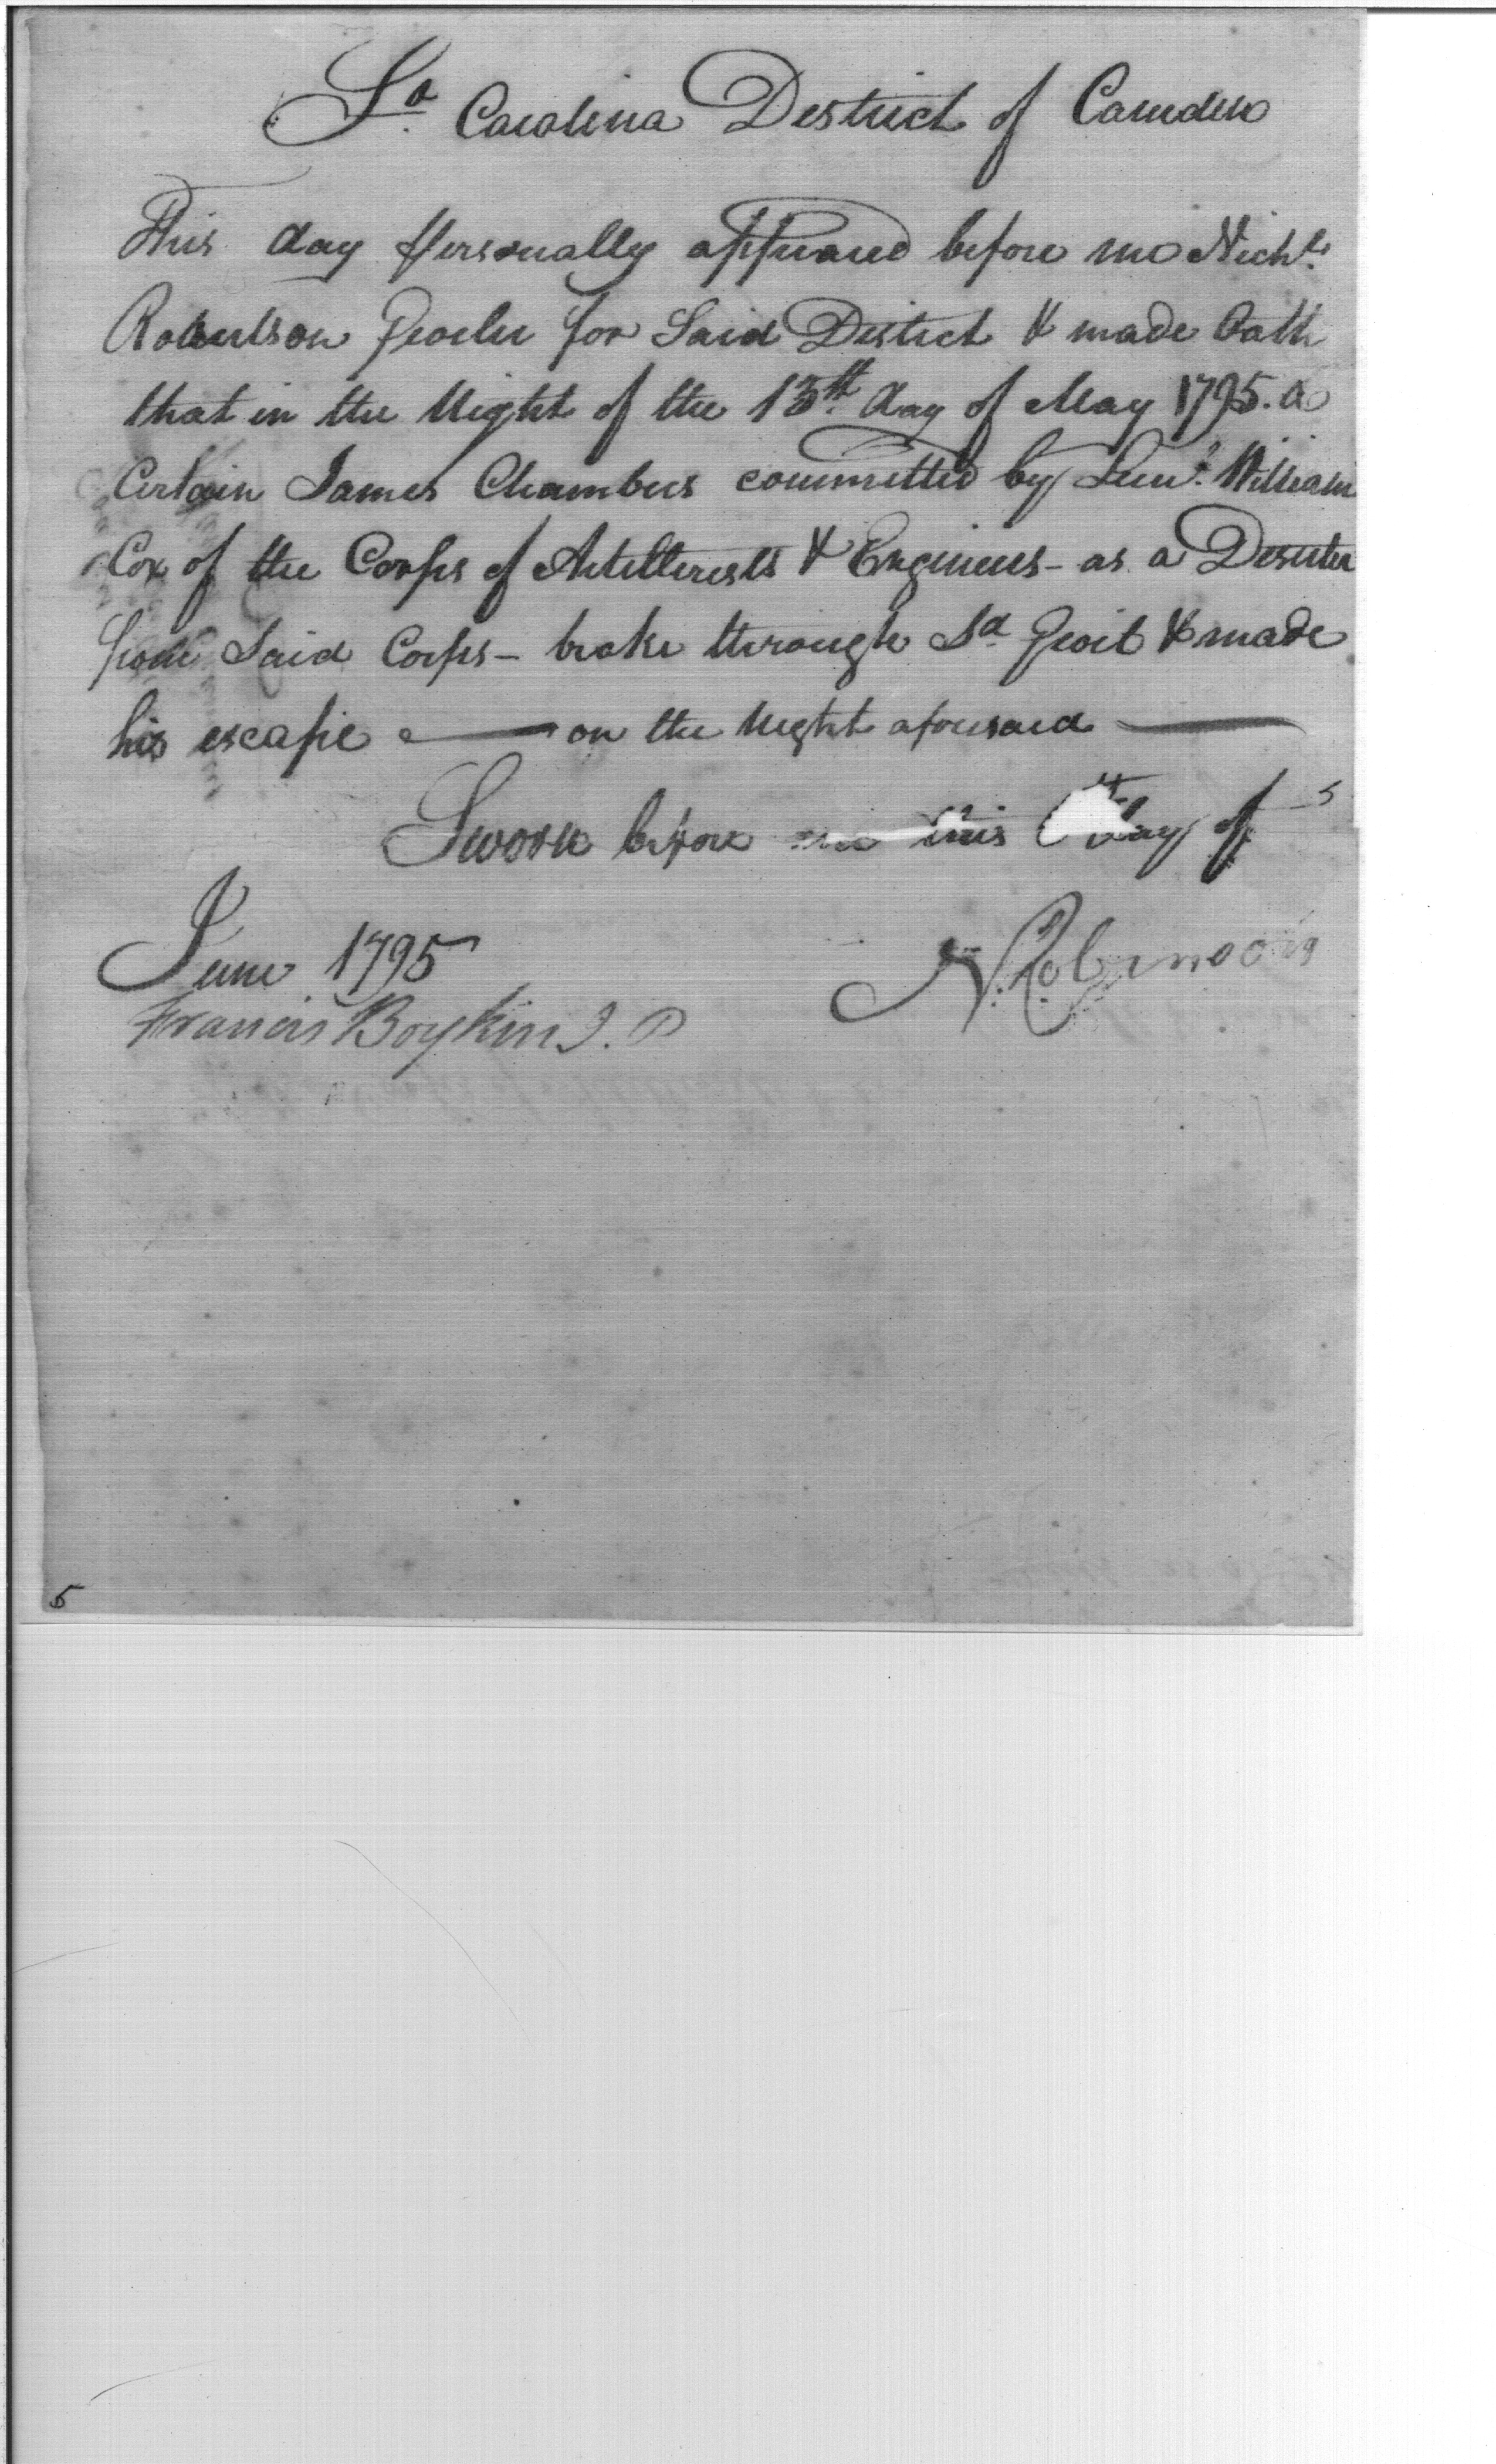 So. Carolina District of Camden
This day personally appeared before me Nichs.
Robertson Goaler for Said District & made Oath
that in the Night of the 13th. day of May 1795. a
Certain James Chambers committed by Lieut. William
Cox of the Corps of Artillerists & Engineers - as a Deserter
from Said Corps - broke through Sd. Goal & made
his escape — on the Night aforesaid —
Sworn before me this day of
June 1795
N. Robinson
Francis Boykin J. P
5